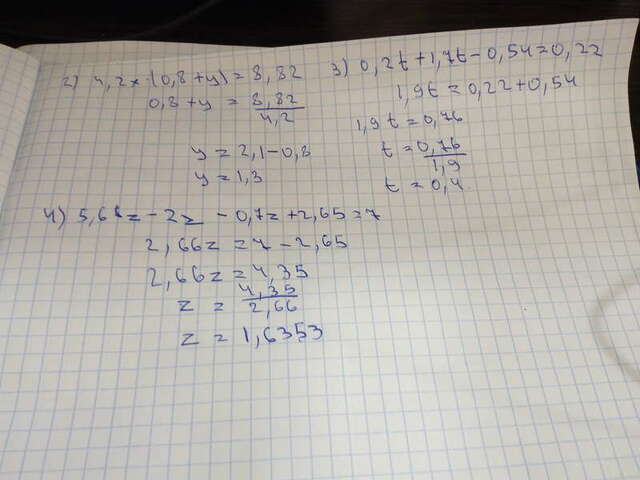 2) 4,2 × (0,8+y) = 8,82
0,8+y = 8,82/4,2
y = 2,1-0,8
y = 1,3
3) 0,2t+1,7t-0,54=0,22
1,9t = 0,22+0,54
1,9t = 0,76
t = 0,76/1,9
t = 0,4
4) 5,66z - 2z - 0,7z + 2,65 = 7
2,66z = 7 - 2,65
2,66z = 4,35
z = 4,35/2,66
z = 1,6353